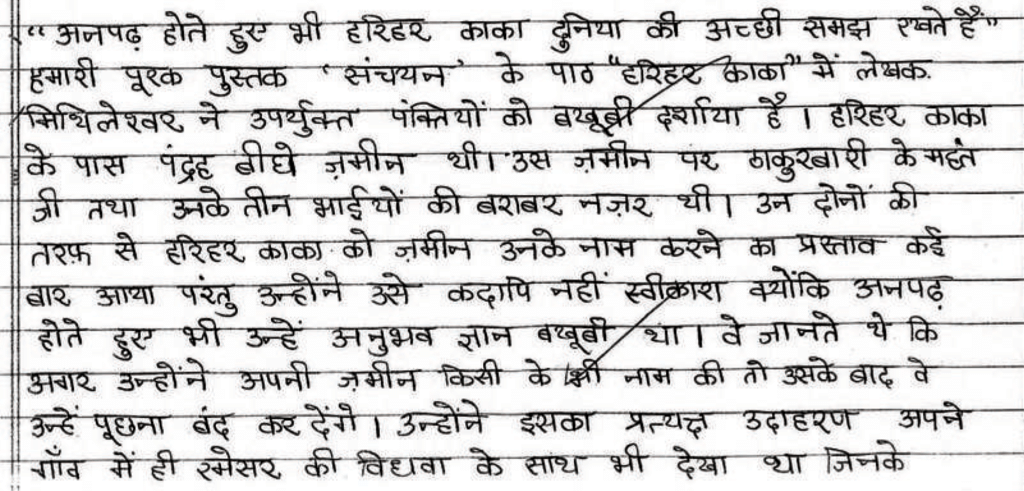 “ अनपढ़ होते हुए भी हरिहर काका दुनिया की अच्छी समझ रखते हैं”
हमारी पूरक पुस्तक ‘संचयन’ के पाठ “हरिहर काका” में लेखक.
मिथिलेश्वर ने उपर्युक्त पंक्तियों को बखूबी दर्शाया है । हरिहर काका
के पास पंद्रह बीघे ज़मीन थी। उस ज़मीन पर ठाकुरबारी के महंत
जी तथा उनके तीन भाईयों की बराबर नज़र थी । उन दोनों की
तरफ़ से हरिहर काका को ज़मीन उनके नाम करने का प्रस्ताव कई
बार आया परंतु उन्होंने उसे कदापि नहीं स्वीकारा क्योंकि अनपढ़
होते हुए भी उन्हें अनुभव ज्ञान बखूबी था । वे जानते थे कि
अगर उन्होंने अपनी ज़मीन किसी के भी नाम की तो उसके बाद वे
उन्हें पूछना बंद कर देंगे । उन्होंने इसका प्रत्यक्ष उदाहरण अपने
गाँव में ही रमेसर की विधवा के साथ भी देखा था जिनके